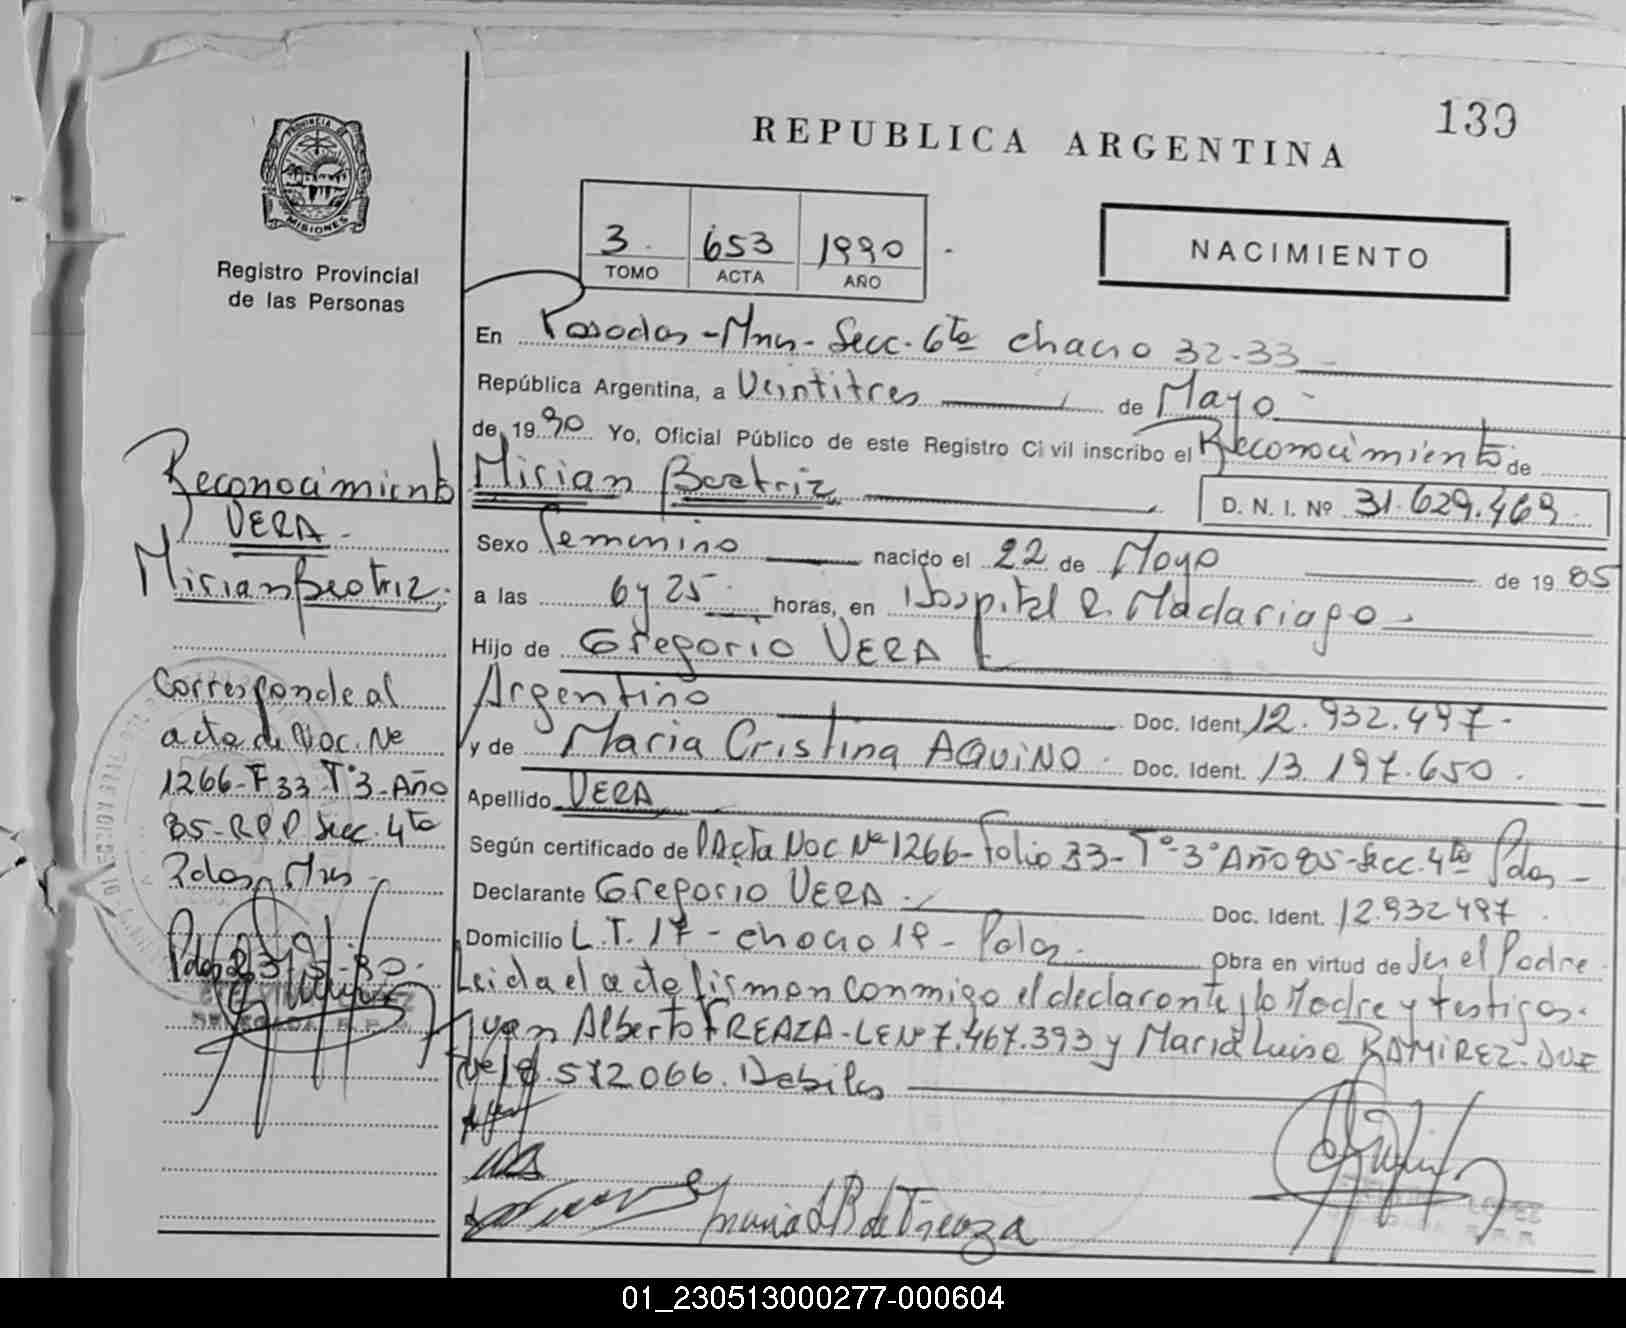 139
REPUBLICA ARGENTINA
PROVINCIA DE
MISIONES
Registro Provincial
de las Personas
3. 653 1990
TOMO ACTA AÑO
NACIMIENTO
En Posadas - Mnes - Secc. 6ta chacra 32-33
República Argentina, a Veintitres de Mayo
de 1990 Yo, Oficial Público de este Registro Civil inscribo el Reconocimiento de
Mirian Beatriz D. N. I. Nº 31.629.469
Sexo Femenino nacido el 22 de Mayo de 1985
a las 6 y 25 horas, en Hospital R. Madariaga
Hijo de Gregorio VERA
Argentino Doc. Ident. 12.932.497.
y de Maria Cristina AQUINO. Doc. Ident. 13.197.650.
Apellido VERA
Según certificado de Acta Nac Nº 1266 - Folio 33 - Tº 3º Año 85 - Secc. 4ta Pdas -
Declarante Gregorio VERA Doc. Ident. 12.932497
Domicilio L.T. 17 - chacra 19 - Pdas. Obra en virtud de Ser el Padre.
Leida el acta firman conmigo el declarante, la Madre y testigos.
Juan Alberto FREAZA - LE Nº 7.467.393 y Maria Luisa RAMIREZ. DNI
572066. Debiles
Maria L R de Freaza
LOPEZ
Reconocimiento
VERA -
Mirian Beatriz.
Corresponde al
acta de Nac. Nº
1266 - F 33 - Tº 3 - Año
85 - RPP Secc. 4ta
Pdas, Mnes -
Pdas 23/5/90.
01_230513000277-000604